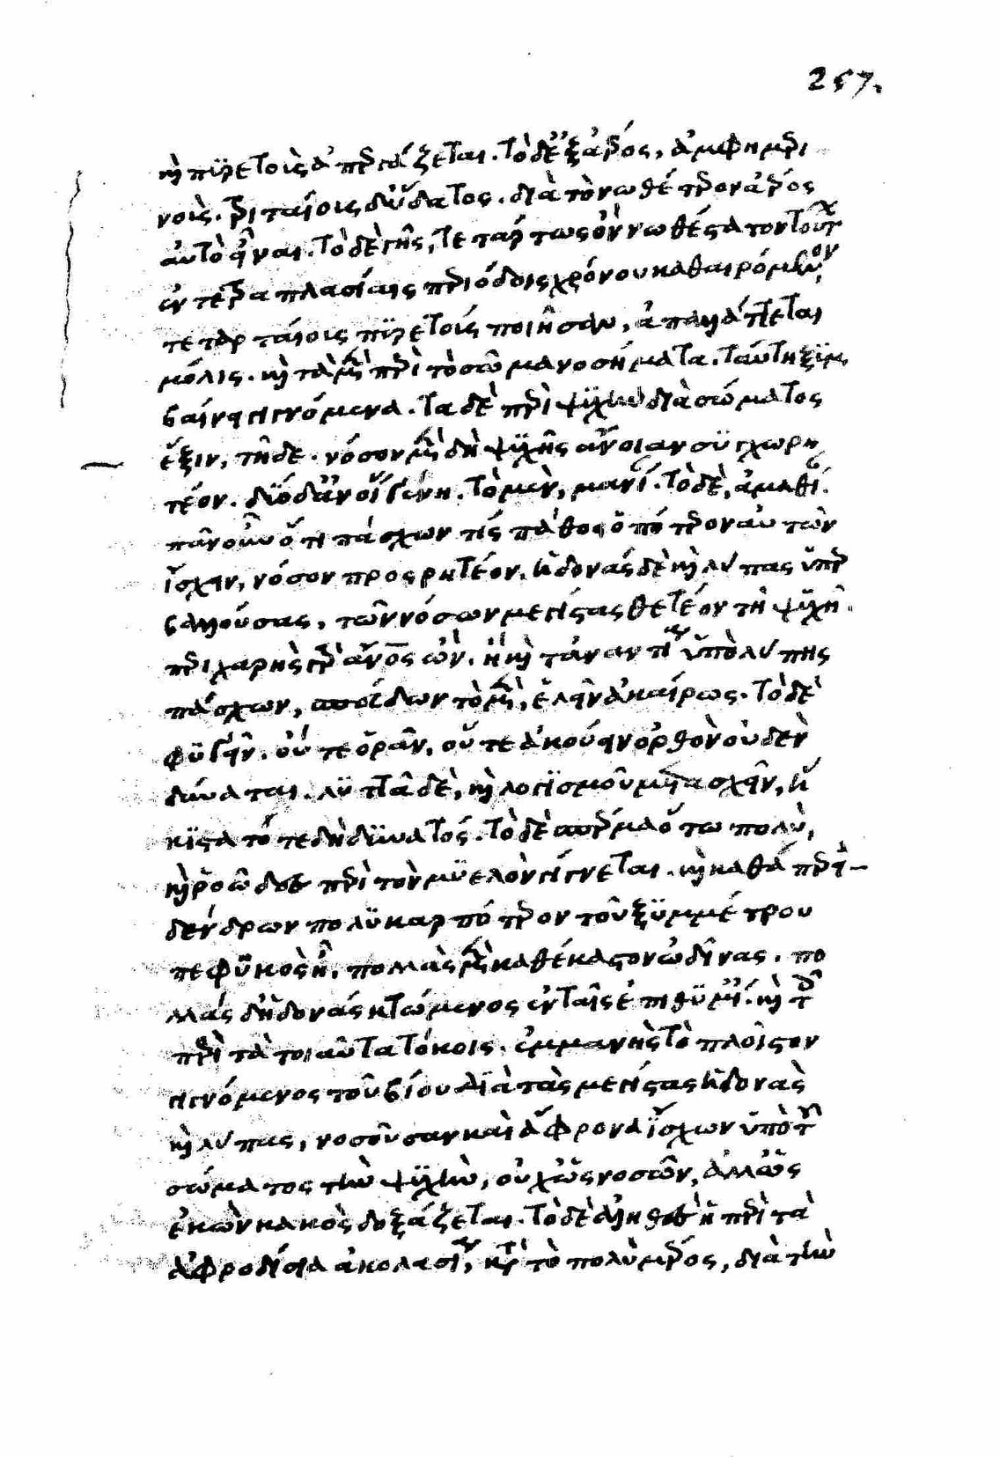 257.
καὶ πυρετοὺς ἀπεργάζεται. τὸ δ' ἐξ ἀέρος, ἀμφημερι
νούς. τριταίους δ' ὕδατος. διὰ τὸ νωθέστερον ἀέρος
αὐτὸ εἶναι. τὸ δὲ γῆς, τετάρτως ὂν νωθέστατον τούτων
ἐν τετραπλασίαις περιόδοις χρόνου καθαιρόμενον,
τεταρταίους πυρετοὺς ποιῆσαν, ἀπαλλάττεται
μόλις. καὶ τὰ μὲν περὶ τὸ σῶμα νοσήματα. ταύτη ξυμ
βαίνει γινόμενα. τὰ δὲ περὶ ψυχὴν διὰ σώματος
ἕξιν, τῆδε. νόσον μὲν δὴ ψυχῆς ἄνοιαν συγχωρη
τέον. δύο δ' ἀνοίας γένη. τὸ μὲν, μανίαν. τὸ δὲ, ἀμαθίαν.
πᾶν οὖν ὅτι πάσχων τίς πάθος ὁπότερον αὐτῶν
ἴσχει, νόσον προσρητέον. ἡδονάς δὲ καὶ λύπας ὑπερ
βαλλούσας, τῶν νόσων μεγίστας θετέον τῆ ψυχῆ.
περιχαρὴς γὰρ ἄνθρωπος ὢν. ἢ καὶ τἀναντία ὑπὸ λύπης
πάσχων, σπεύδων τὸ μὲν, ἑλεῖν ἀκαίρως. τὸ δὲ
φυγεῖν. οὔτε ὁρᾶν, οὔτε ἀκούειν ὀρθὸν οὐδὲν
δύναται. λυττᾶ δὲ, καὶ λογισμοῦ μετασχεῖν, ἥ
κιστα τότε δὴ δυνατός. τὸ δὲ σπέρμα ὅτω πολὺ,
καὶ ῥοῶδες περὶ τὸν μυελὸν γίγνεται. καὶ καθάπερεὶ
δένδρων πολυκαρπότερον τοῦ ξυμμέτρου
πεφυκὸς ἦ, πολλὰς μὲν καθέκαστον ὠδῖνας. πο
λλάς δ' ἡδονάς κτώμενος ἐν ταῖς ἐπιθυμίαις. καὶ τοῖς
περὶ τὰ τοιαῦτα τόκοις. ἐμμανὴς τὸ πλεῖστον
γιγνόμενος τοῦ βίου διὰ τὰς μεγίστας ἡδονὰς
καὶ λύπας, νοσοῦσαν καὶ ἄφρονα ἴσχων ὑπὸ τοῦ
σώματος τὴν ψυχὴν, οὐχ ὡς νοσῶν, ἀλλ' ὡς
ἑκὼν κακὸς δοξάζεται. τὸ δὲ ἀληθὲς ἡ περὶ τὰ
ἀφροδίσια ἀκολασία, κατὰ τὸ πολὺ μέρος, διὰ τὴν